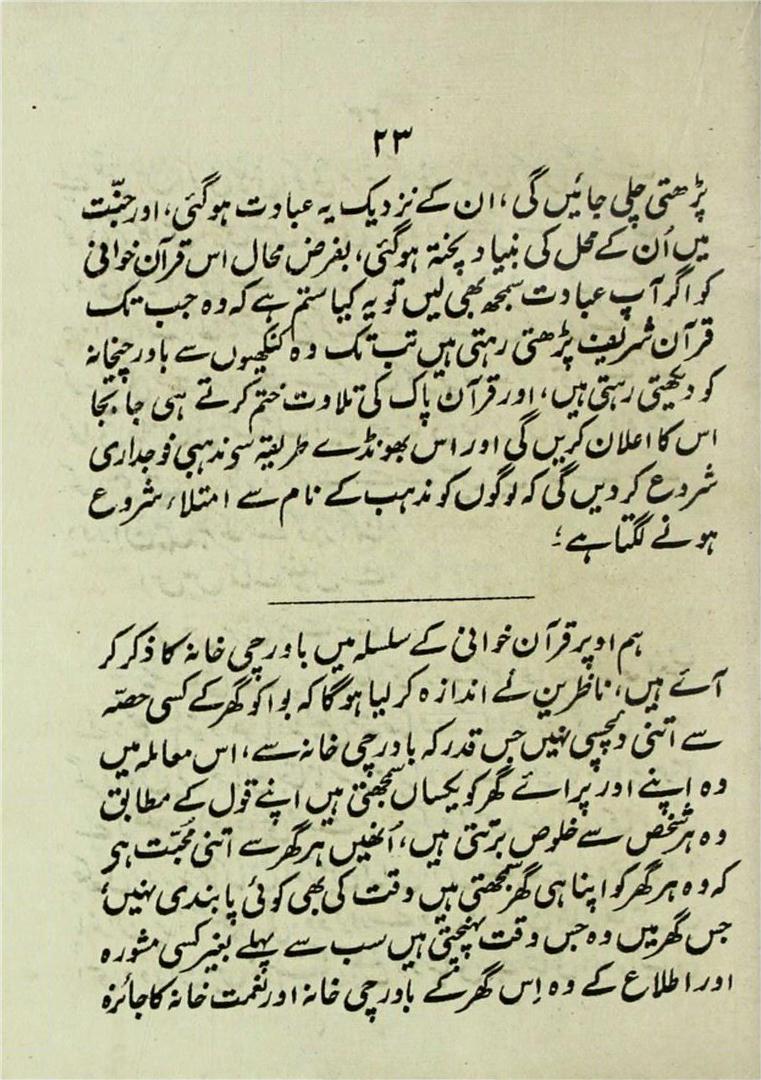 ۲۳
پڑھتی چلی جائیں گی، ان کے نزدیک یہ عبادت ہوگئی، اور جنّت
میں اُن کے محل کی بنیاد پختہ ہوگئی، بفرض محال اس قرآن خوانی
کو اگر آپ عبادت سمجھ بھی لیں تو یہ کیا ستم ہے کہ وہ جب تک
قرآن شریف پڑھتی رہتی ہیں تب تک وہ کنکھیوں سے باورچیخانہ
کو دیکھتی رہتی ہیں، اور قرآن پاک کی تلاوت ختم کرتے ہی جا بجا
اس کا اعلان کریں گی اور اس بھونڈے طریقہ سے مذہبی فوجداری
شروع کر دیں گی کہ لوگوں کو مذہب کے نام سے امتلاء شروع
ہونے لگتا ہے؛
ہم اوپر قرآن خوانی کے سلسلہ میں باورچی خانہ کا ذکر کر
آئے ہیں، ناظرین نے اندازہ کر لیا ہوگا کہ بوا کو گھر کے کسی حصّہ
سے اتنی دلچسپی نہیں جس قدر کہ باورچی خانہ سے، اس معاملہ میں
وہ اپنے اور پرائے گھر کو یکساں سمجھتی ہیں اپنے قول کے مطابق
وہ ہر شخص سے خلوص برتتی ہیں، اُنھیں ہر گھر سے اتنی محبّت ہی
کہ وہ ہر گھر کو اپنا ہی گھر سمجھتی ہیں وقت کی بھی کوئی پابندی نہیں؛
جس گھر میں وہ جس وقت پہنچتی ہیں سب سے پہلے بغیر کسی مشورہ
اور اطلاع کے وہ اِس گھر کے باورچی خانہ اور نعمت خانہ کا جائزہ